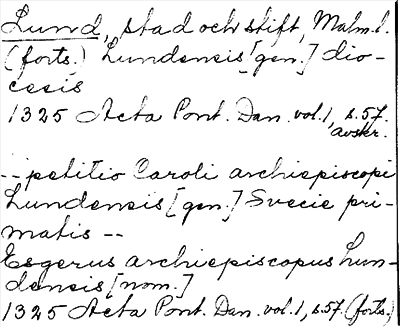 Lund, stad och stift, Malm. l.
(forts.) Lundensis [gen.] dio-
cesis
1325 Acta Pont. Dan. vol. 1, s. 57.
avskr.
-- petitio Caroli archiepiscopi
Lundensis [gen.] Svecie pri-
matis --
Esgerus archiepiscopus Lun-
densis [nom.]
1325 Acta Pont. Dan. vol. 1, s. 57 (forts.)